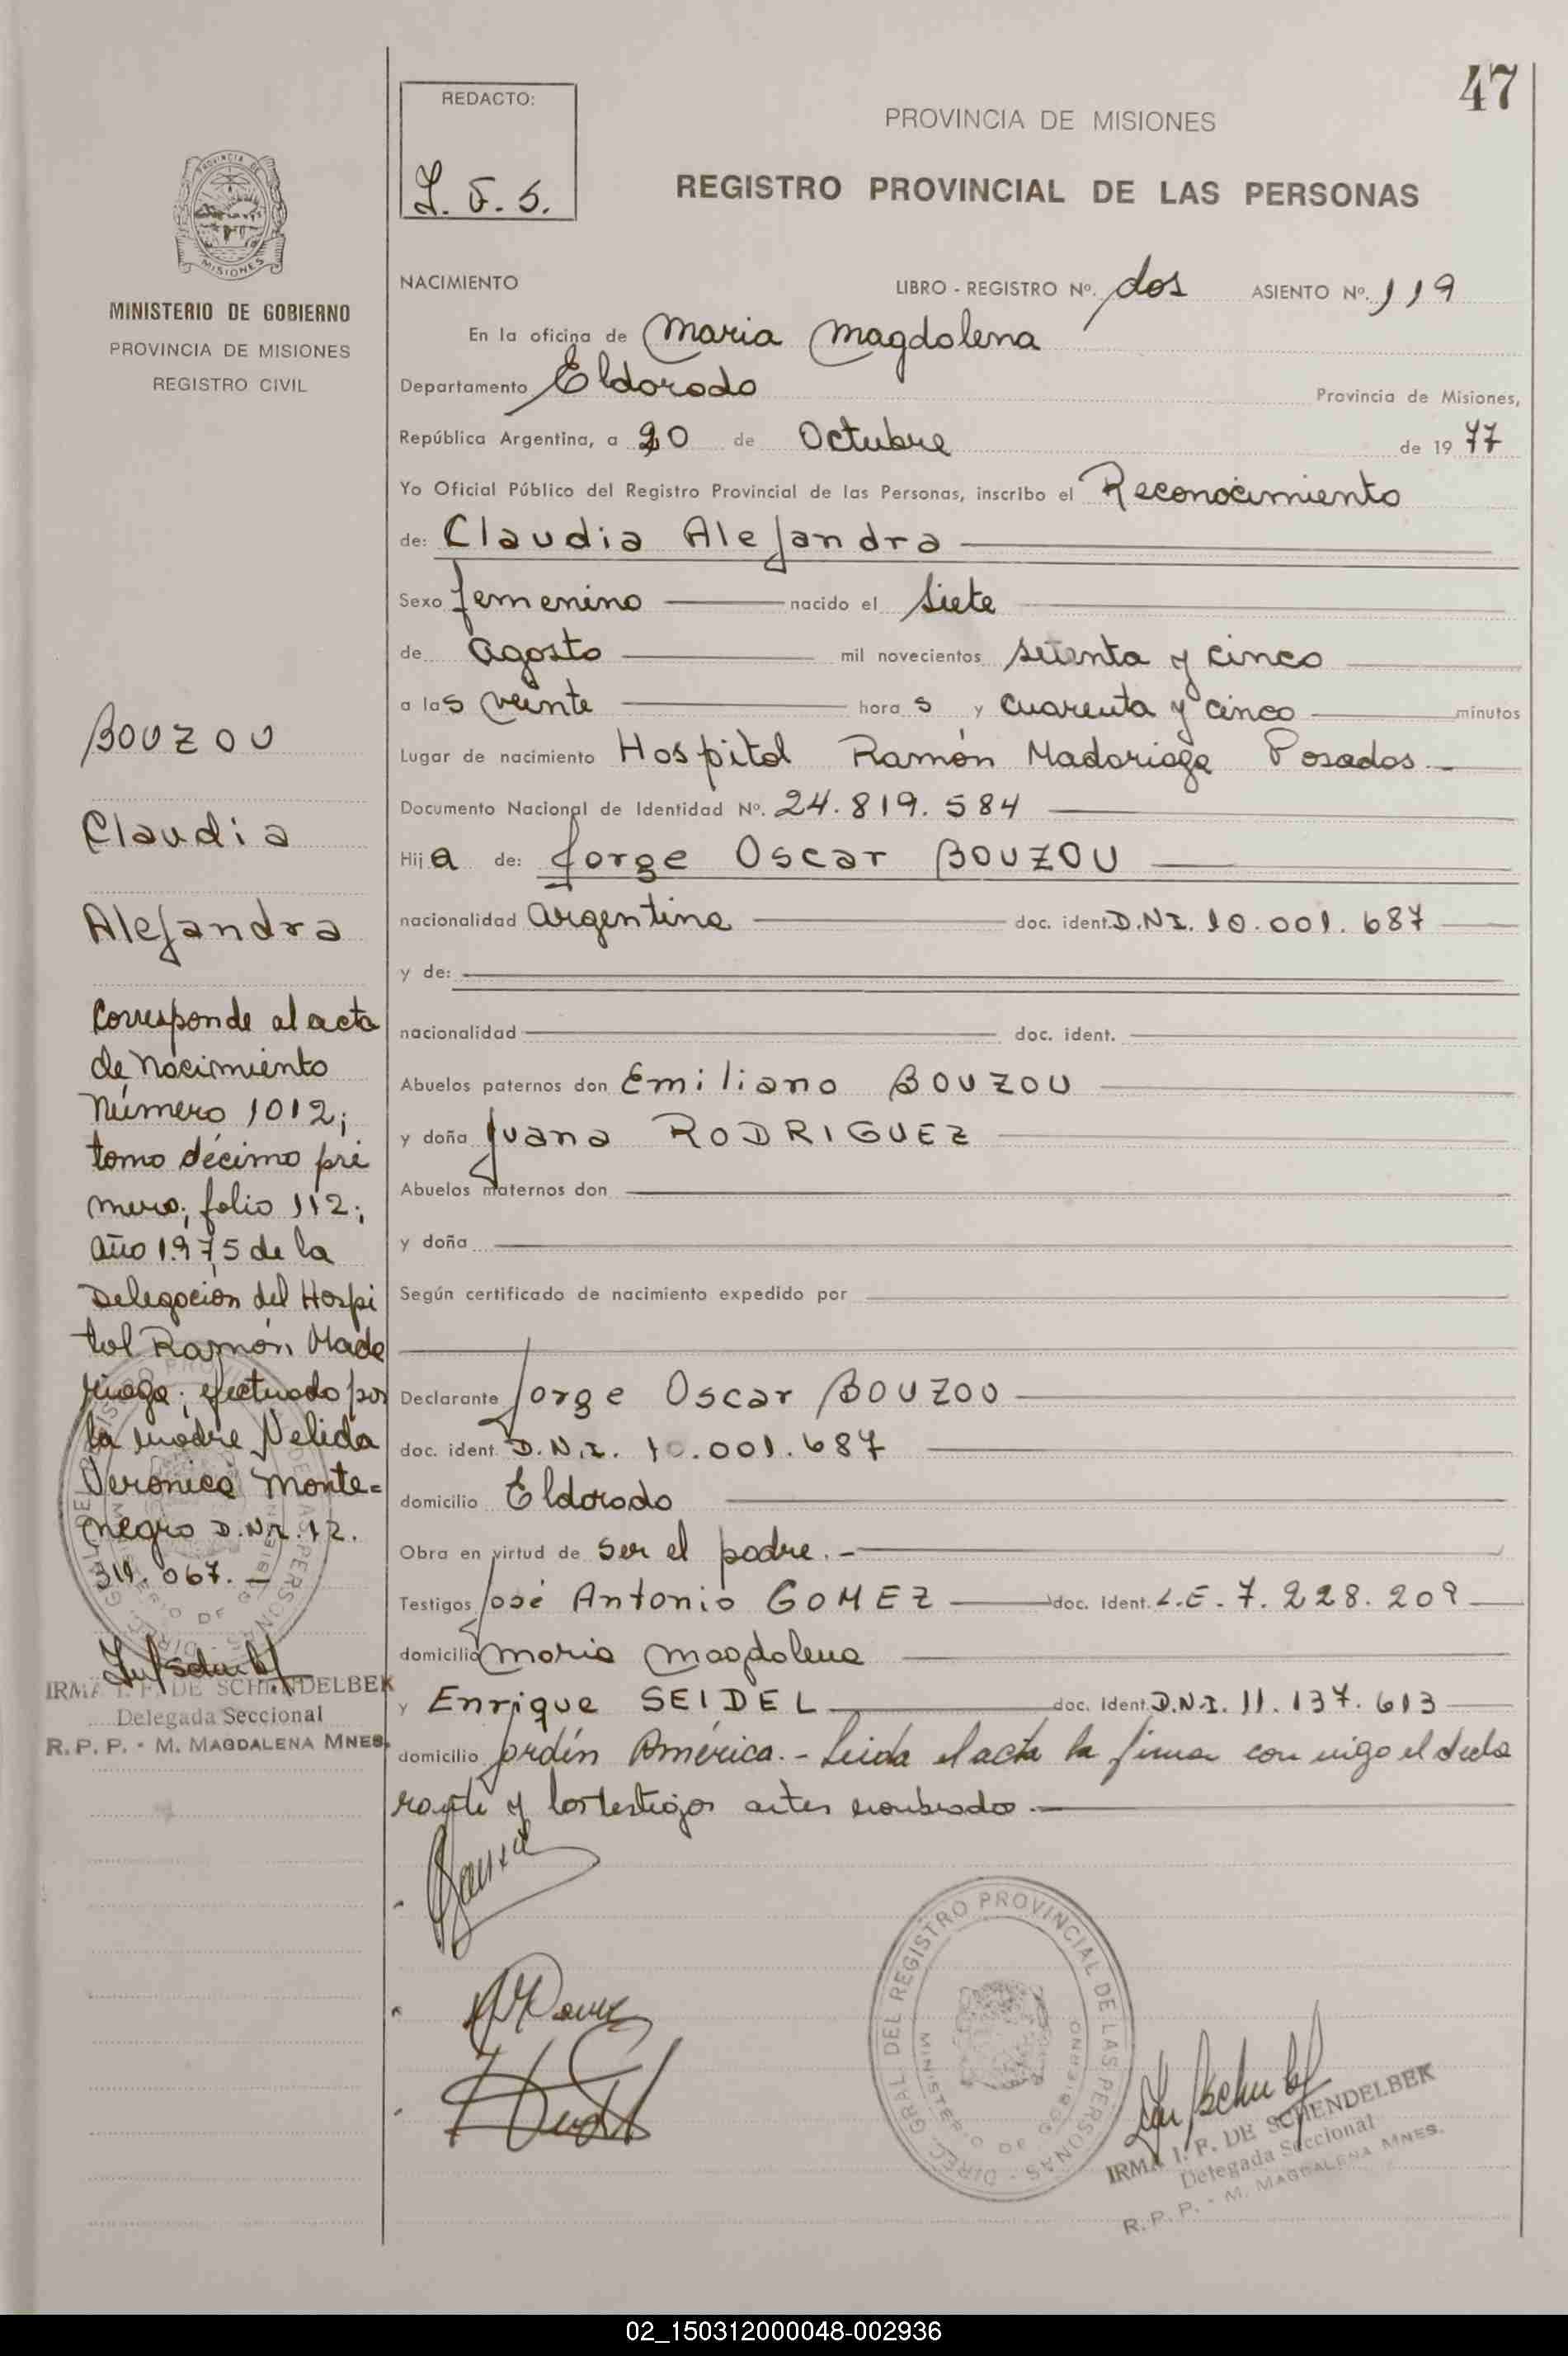 47
REDACTO:
PROVINCIA DE MISIONES
REGISTRO PROVINCIAL DE LAS PERSONAS
MISIONES
MINISTERIO DE GOBIERNO
PROVINCIA DE MISIONES
REGISTRO CIVIL
NACIMIENTO LIBRO - REGISTRO Nº. dos ASIENTO Nº. 119
En la oficina de Maria Magdalena
Departamento Eldorado Provincia de Misiones,
República Argentina, a 20 de Octubre de 19 77
Yo Oficial Público del Registro Provincial de las Personas, inscribo el Reconocimiento
de: Claudia Alejandra
Sexo femenino nacido el siete
de agosto mil novecientos setenta y cinco
a las veinte horas y cuarenta y cinco minutos
Lugar de nacimiento Hospital Ramón Madariaga Posadas.-
Documento Nacional de Identidad Nº. 24.819.584
Hija de: Jorge Oscar BOUZOU
nacionalidad argentina doc. ident. D.N.I. 10.001.687
y de:
nacionalidad doc. ident.
Abuelos paternos don Emiliano BOUZOU
y doña Juana RODRIGUEZ
Abuelos maternos don
y doña
Según certificado de nacimiento expedido por
Declarante Jorge Oscar BOUZOU
doc. ident. D.N.I. 10.001.687
domicilio Eldorado
Obra en virtud de ser el padre.-
Testigos José Antonio GOMEZ doc. ident. L.E. 7.228.209
domicilio Maria Magdalena
y Enrique SEIDEL doc. ident. D.N.I. 11.137.613
domicilio Jardín América.- Leida el acta la firma con migo el decla
rante y los testigos antes nombrados.-
BOUZOU
Claudia
Alejandra
Corresponde al acta
de Nacimiento
Número 1012;
tomo décimo pri
mero; folio 112;
año 1975 de la
Delegación del Hospi
tal Ramón Mada
riaga; efectuado por
la madre Nelida
Veronica Monte=
negro D.N.I. 12.
311.067.-
IRMA I. F. DE SCHENDELBEK
Delegada Seccional
R. P. P. - M. MAGDALENA MNES.
DIREC. GRAL DEL REGISTRO PROVINCIAL DE LAS PERSONAS -
MINISTERIO DE GOBIERNO
IRMA I. F. DE SCHENDELBEK
Delegada Seccional
R. P. P. - M. MAGDALENA MNES.
02_150312000048-002936